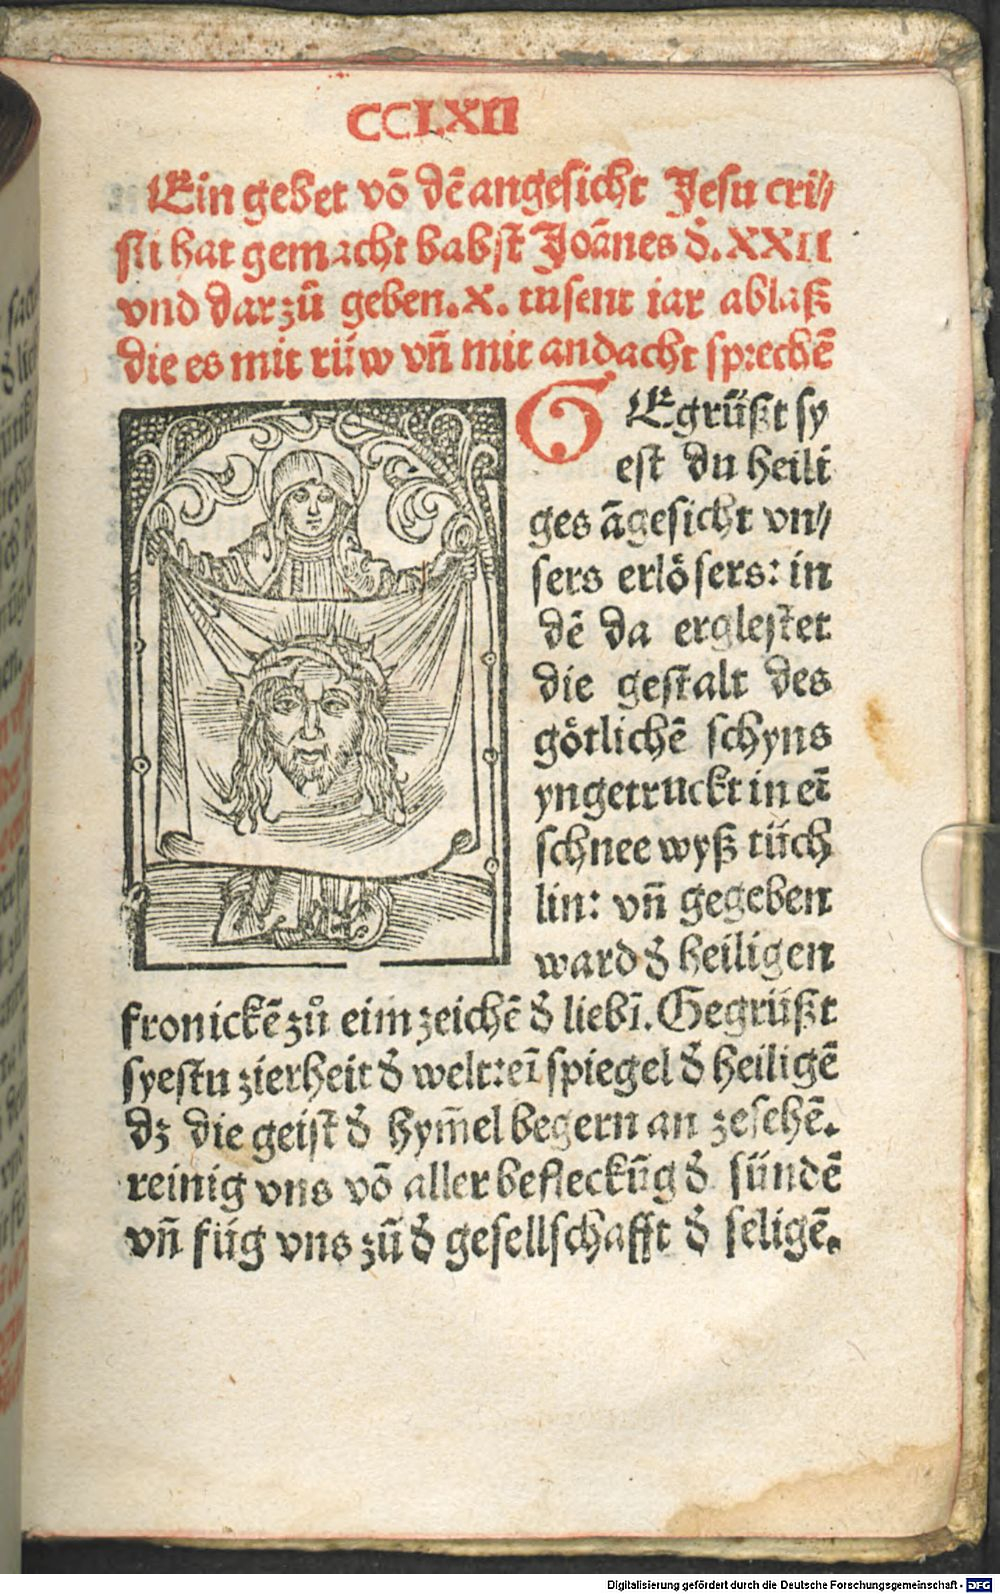 CCLXII
Ein gebet võ dẽ angesicht Jesu cri⸗
sti hat gemacht babst Joãnes d᷑. XXII
vnd darzů geben. x. tusent iar ablaß
die es mit rüw vñ mit andacht sprechẽ
GEgrüßt sy
est du heili
ges ãgesicht vn⸗
sers erlösers: in
dẽ da erglestet
die gestalt des
götlichẽ schyns
yngetruckt in eĩ
schnee wyß tüch
lin: vñ gegeben
ward d᷑ heiligen
fronickẽ zů eim zeichẽ d᷑ liebĩ. Gegrüßt
syestu zierheit d᷑ welt: eĩ spiegel d᷑ heiligẽ
dz die geist d᷑ hym̃el begern an zesehẽ.
reinig vns võ aller befleckũg d᷑ sündẽ
vñ füg vns zů d᷑ gesellschafft d᷑ seligẽ.
Digitalisierung gefördert durch die Deutsche Forschungsgemeinschaft - DFG